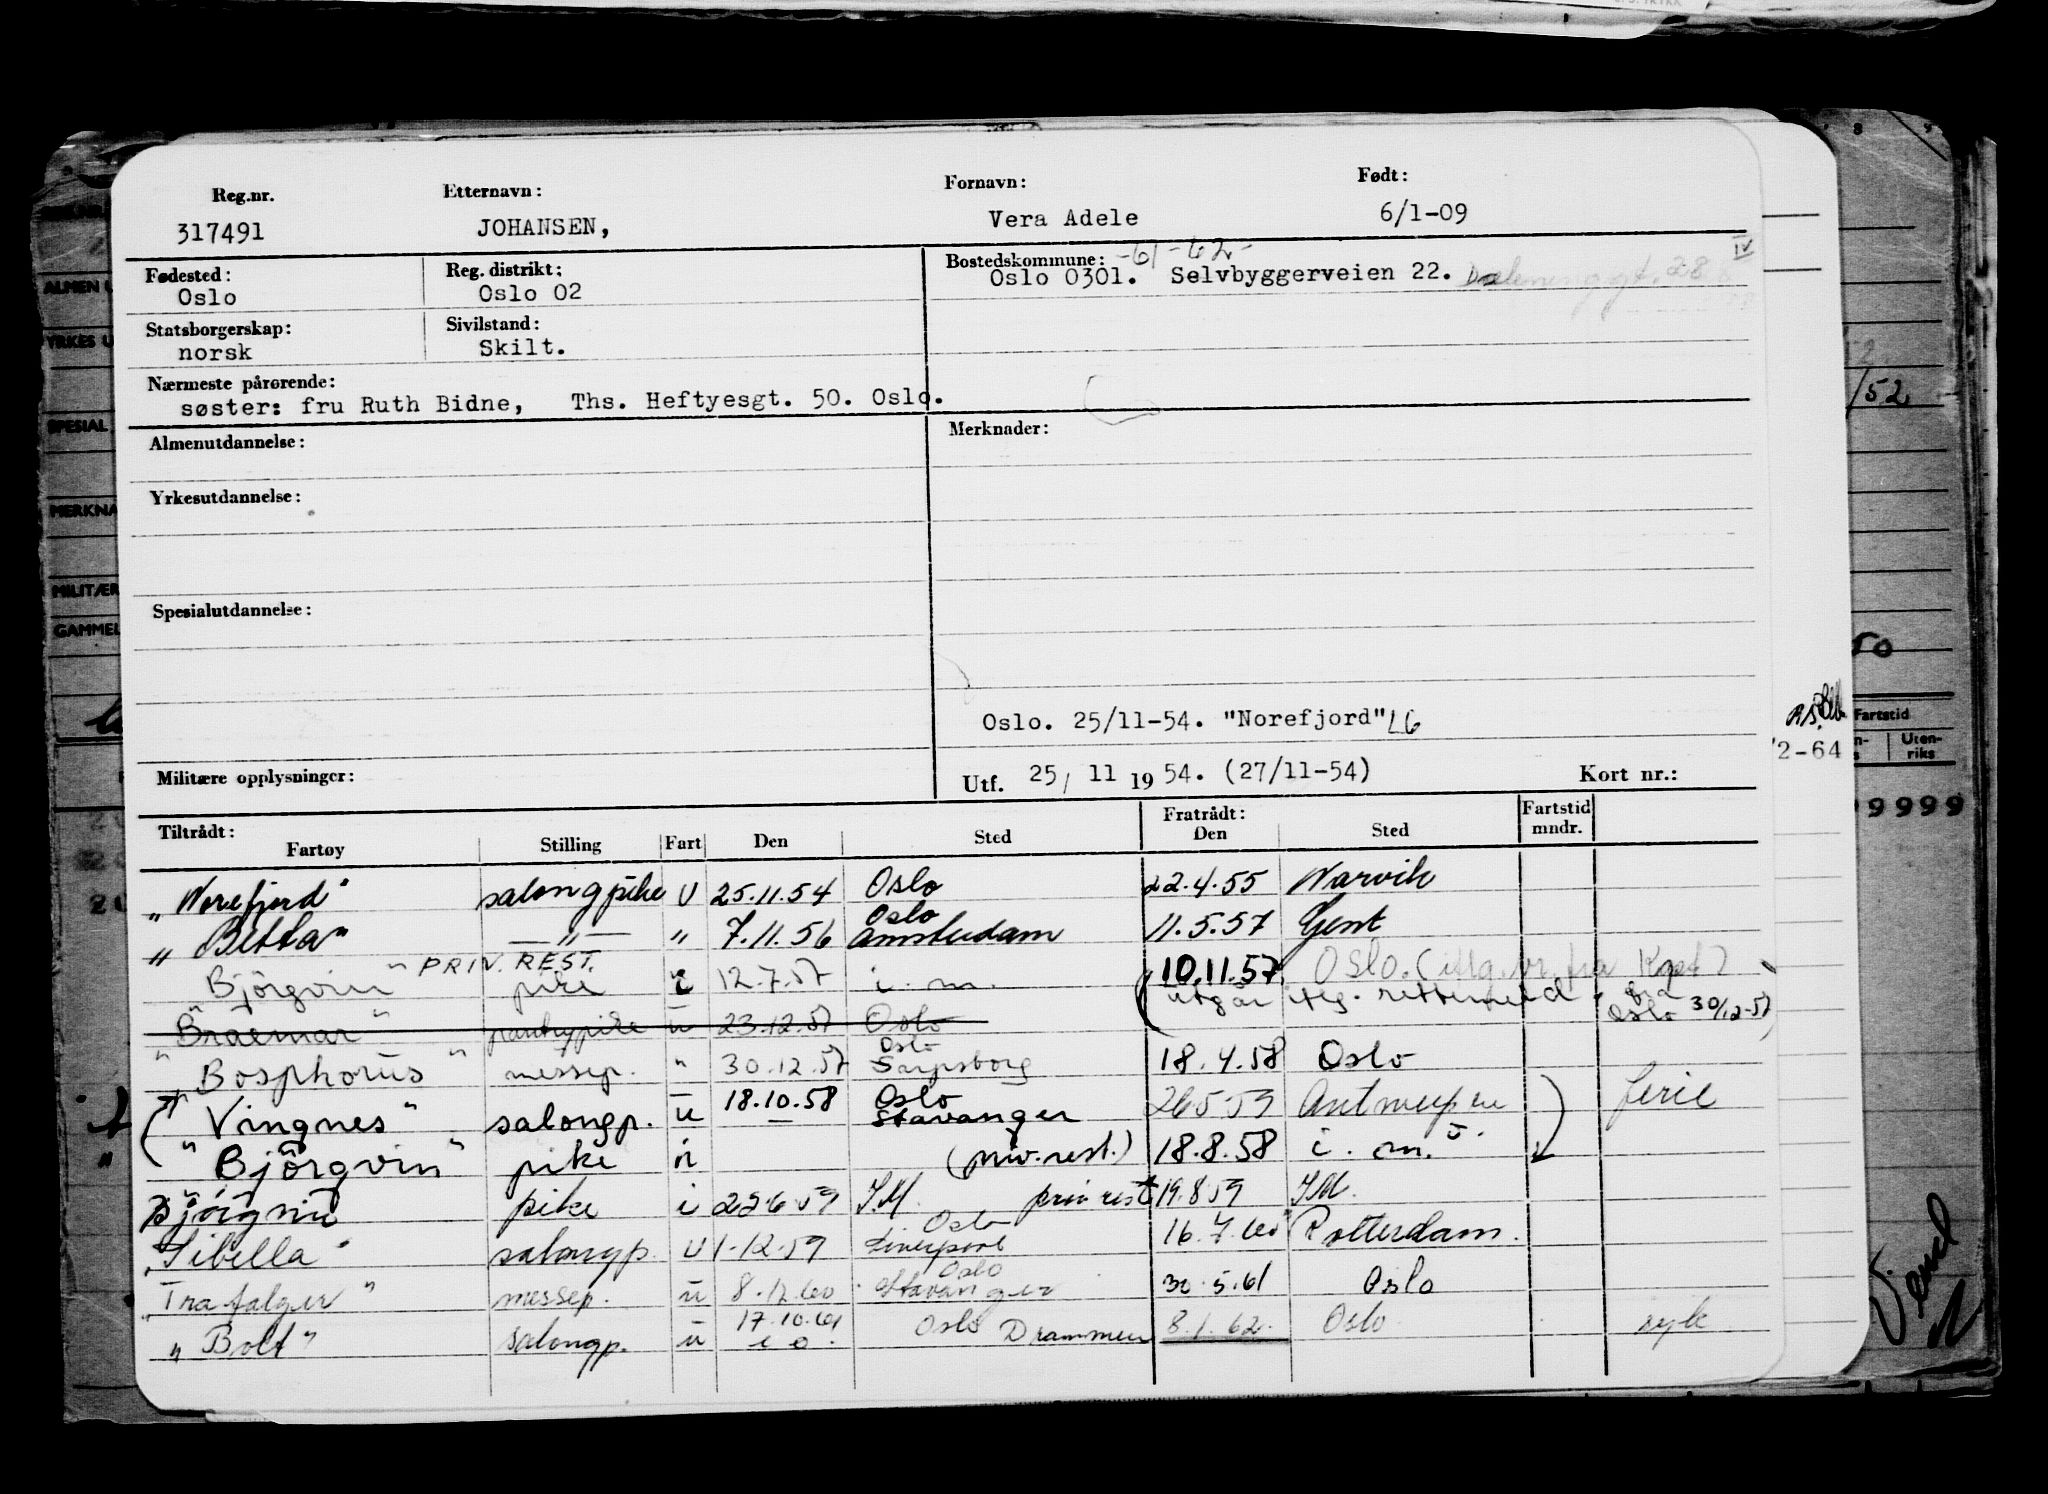 Reg.nr. Etternavn: Fornavn: Født:
317491 JOHANSEN, Vera Adele 6/1-09
Fødested: Reg. distrikt: Bostedskommune: -61-62-
Oslo Oslo 02 Oslo 0301. Selvbyggerveien 22. 28 IV
Statsborgerskap: Sivilstand:
norsk Skilt.
Nærmeste pårørende:
søster: fru Ruth Bidne, Ths. Heftyesgt. 50. Oslo.
Almenutdannelse: Merknader:
Yrkesutdannelse:
Spesialutdannelse:
Oslo. 25/11-54. "Norefjord" LG
Militære opplysninger: Utf. 25/ 11 19 54. (27/11-54) Kort nr.:
Tiltrådt: Fratrådt: Fartstid
Fartøy Stilling Fart Den Sted Den Sted mndr.
"Norefjord" salongpike U 25.11.54 Oslo 22.4.55 Narvik
"Betta" —"— " 7.11.56 Oslo Amsterdam 11.5.57 Gent
"Bjørgvin" PRIV. REST. pike i 12.7.57 i. m. 10.11.57. Oslo.
"Braemar" pantrypike u 23.12.57 Oslo utgår flg. rettemeld. fra Oslo 30/12-57)
"Bosphorus" messep. " 30.12.57 Oslo Sarpsborg 18.4.58 Oslo
"Vingnes" salongp. u 18.10.58 Oslo Stavanger 26 5 59 Antwerpen ferie
"Bjørgvin" pike i (priv.rest.) 18.8.58 i. m.
"Bjørgvin pike i 22 6 59 I.M. priv rest 19.8 59 I M.
"Sibella" salongp. U 1-12-59 Oslo Liverpool 16.7.60 Rotterdam.
"Trafalger" messep. u 8.12.60 Oslo Stavanger 30.5.61 Oslo
"Bolt" salongp. u 17.10.61 Oslo Drammen 8.1.62. Oslo syk
ALMEN U
YRKES U
SPESIAL
MERKNA
MILITÆR
GAMMEL
/52
50
2-64
Fartstid
Uten-
riks
9999